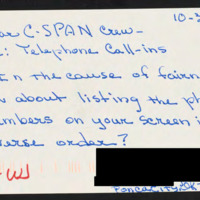 ar C-SPAN Crew-
: Telephone Call-ins
In the cause of fairn
about listing the ph
mbers on your screen i
verse order?
Ponca City